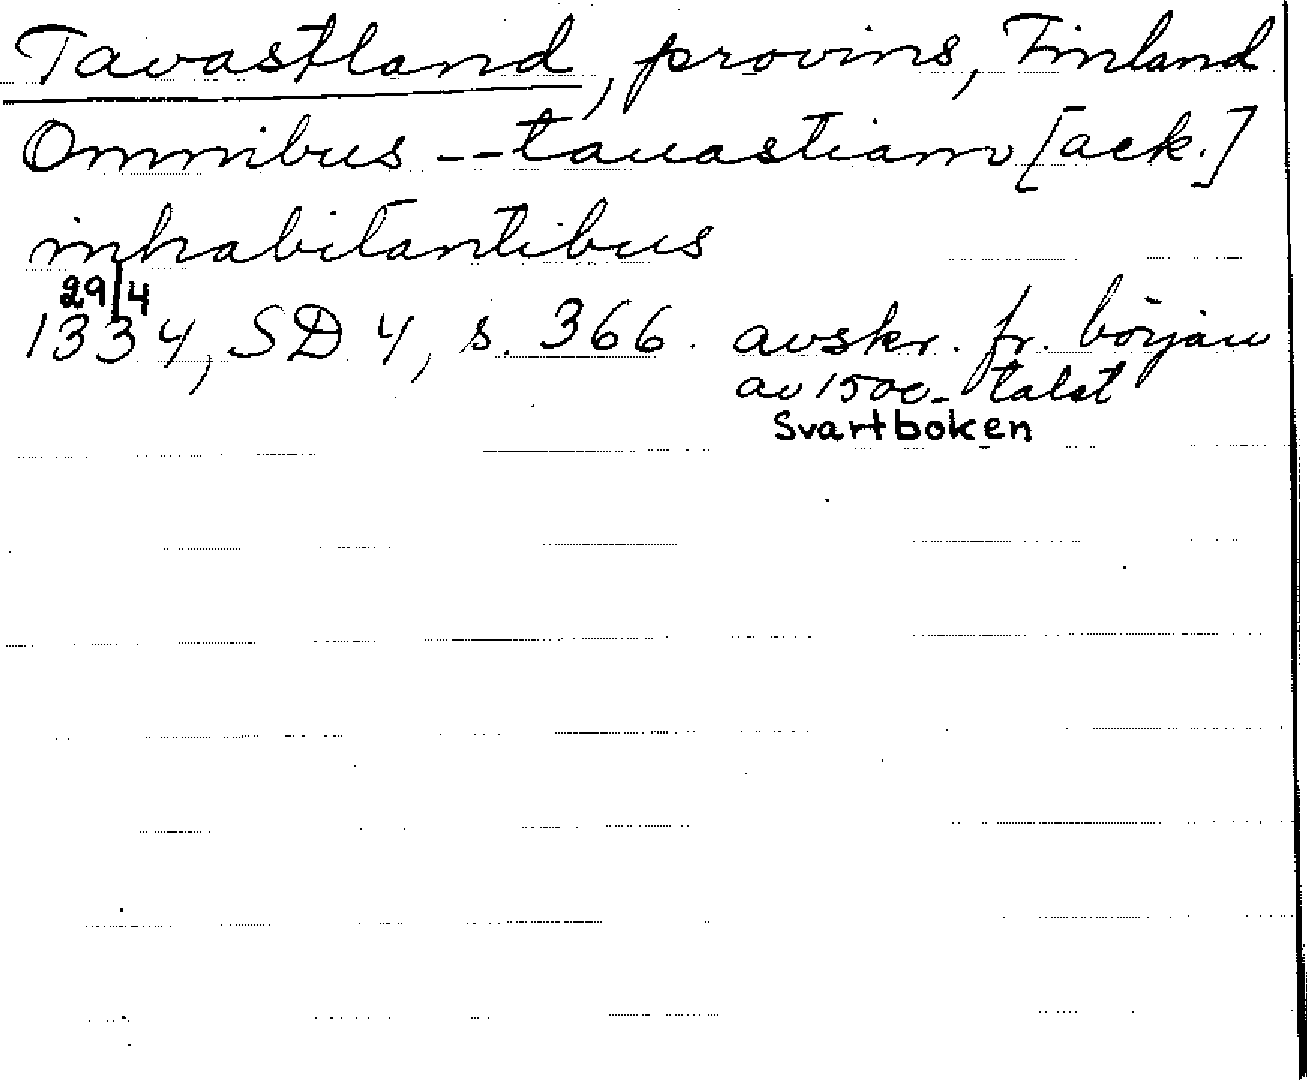 Tavastland, provins, Finland
Omnibus -- tauastiam [ack.]
inhabitantibus
29/4
1334, SD 4, s. 366. avskr. fr. början
av 1500-talet
Svartboken